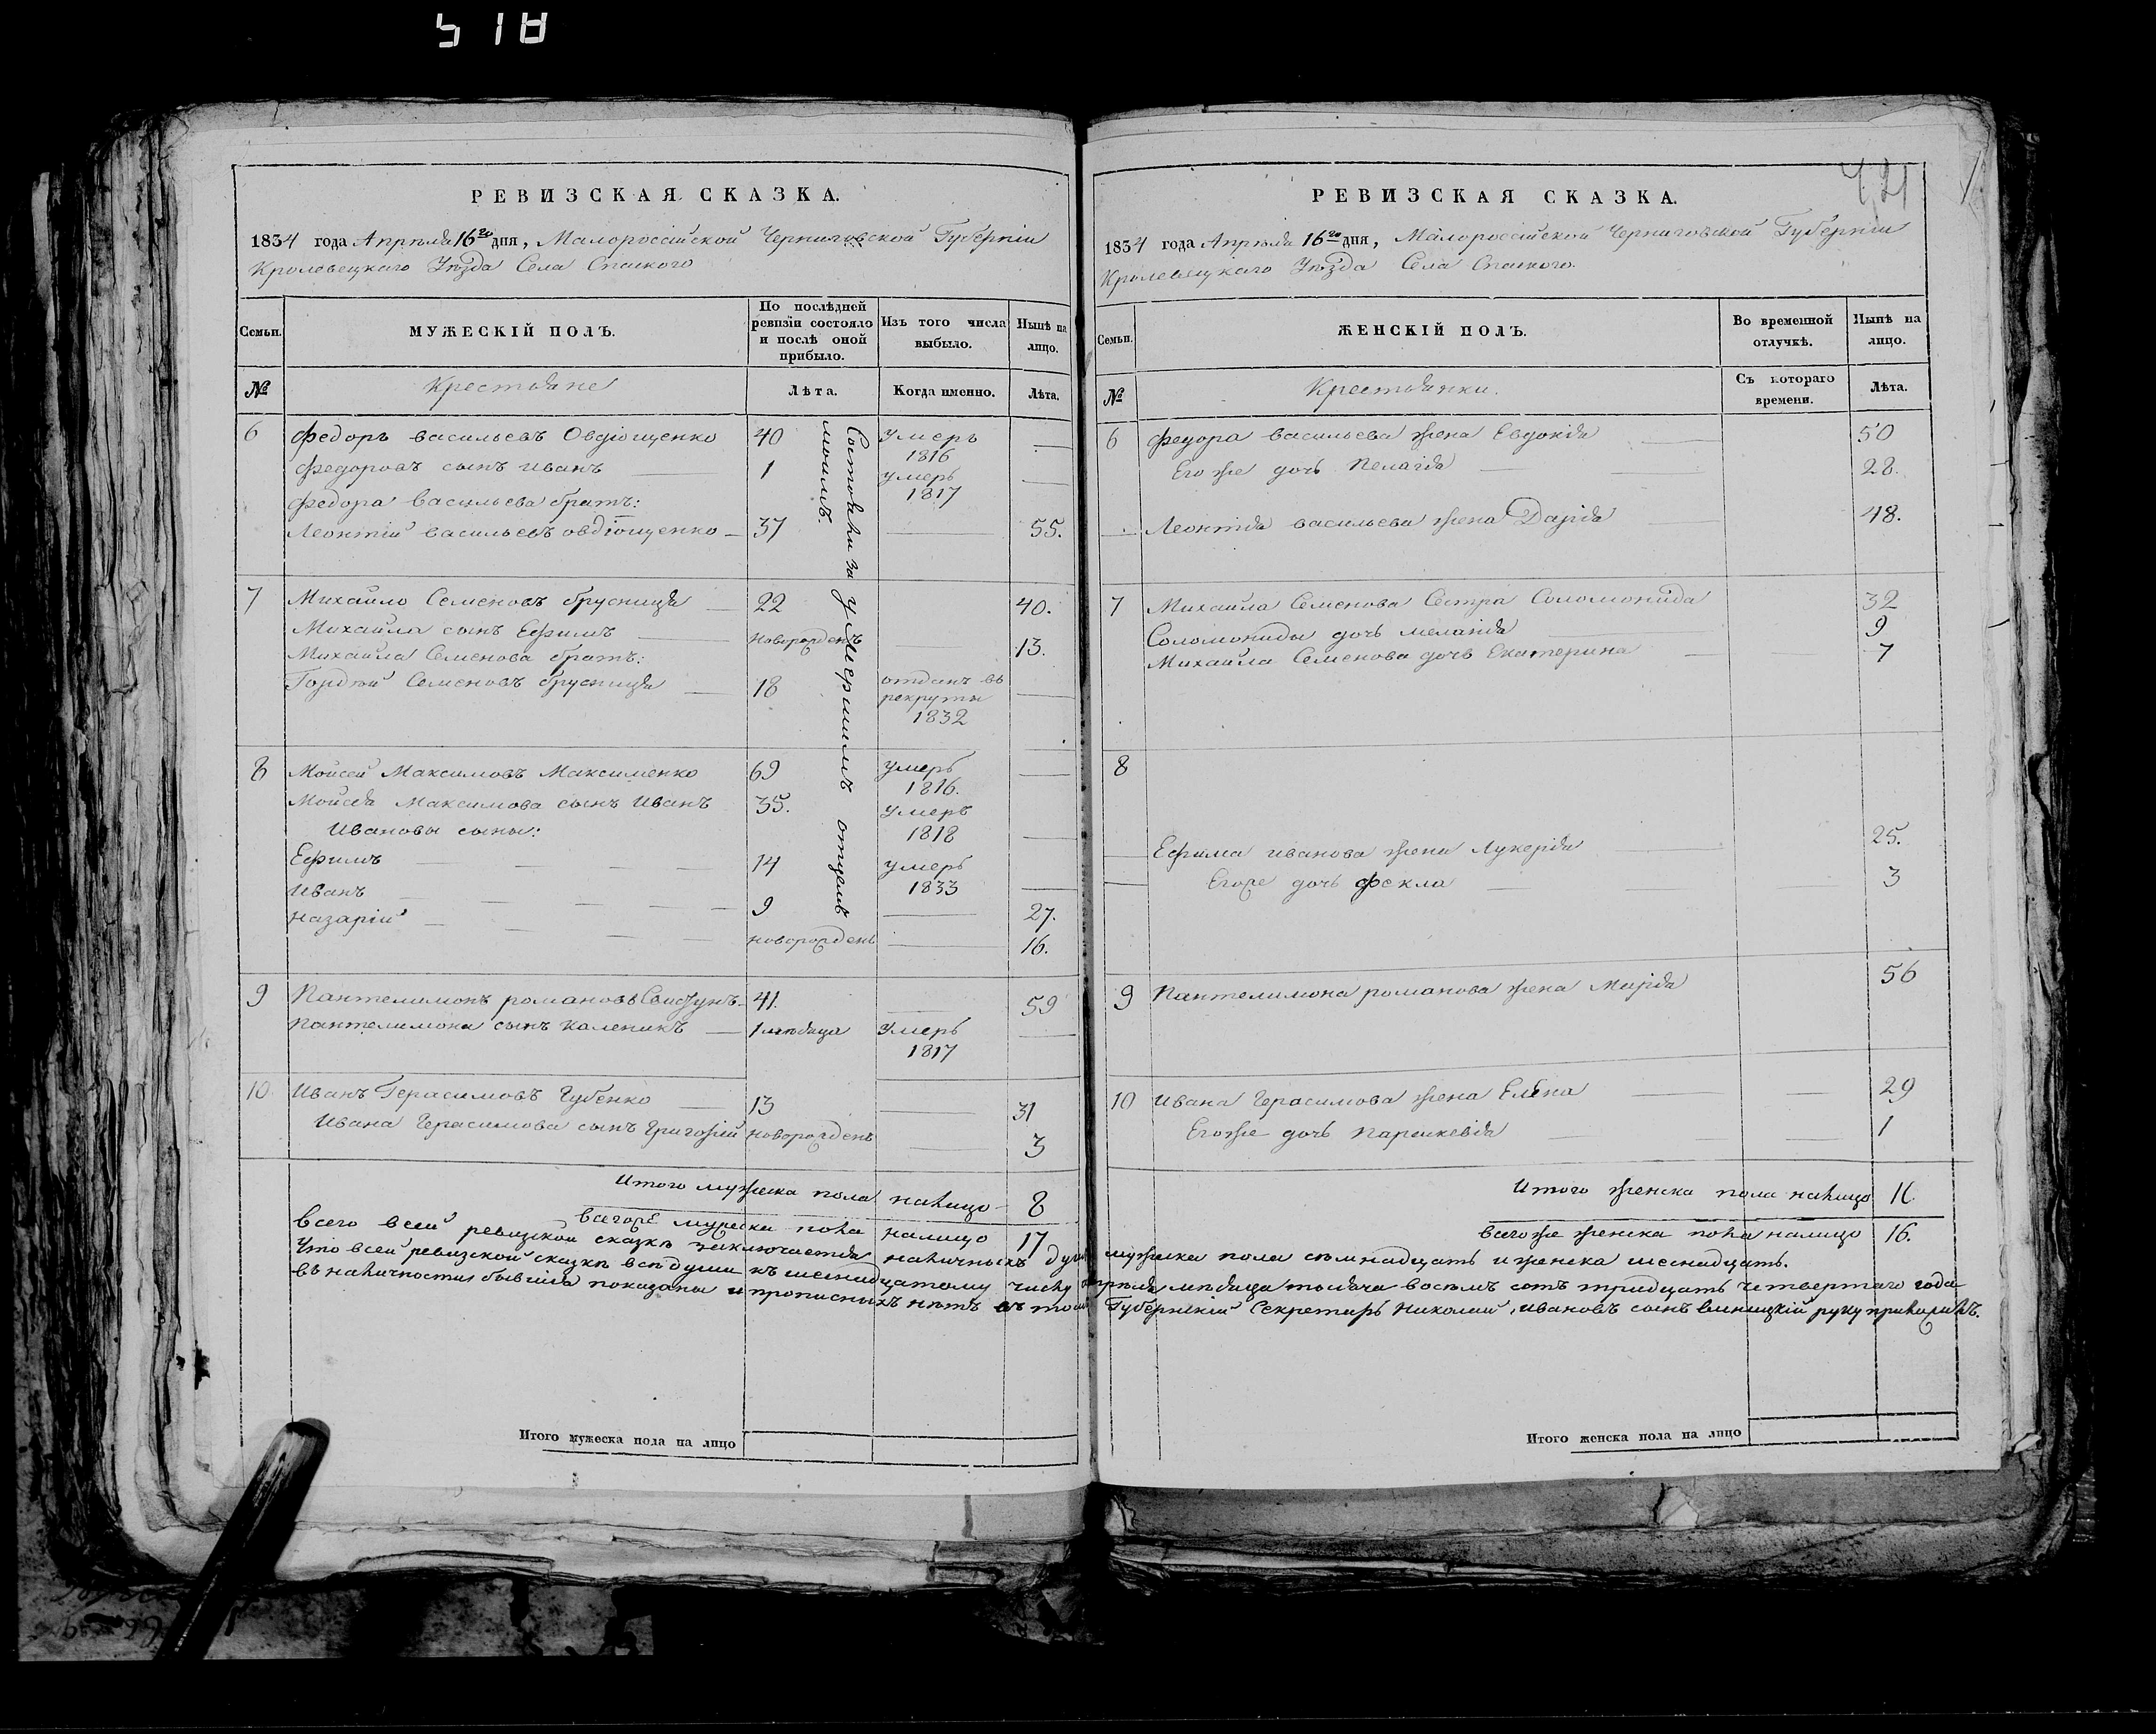 518
РЕВИЗСКАЯ СКАЗКА.
1834 года Апрѣля 16го дня, Малороссійской Черниговской Губерніи
Кролевецкаго Уѣзда Села Спаского
Семьи.
МУЖЕСКІЙ ПОЛЪ.
По послѣдней ревизіи состояло и послѣ оной прибыло.
Изъ того числа выбыло.
Нынѣ на лицо.
№
Крестьяне
Лѣта.
Когда именно.
Лѣта.
6 Федоръ васильевъ Овдіощенко 40 умеръ 1816
Федоровъ сынъ иванъ 1 умеръ 1817
Федора васильева братъ:
Леонтій васильевъ овдіощенко 37 55.
7 Михайло Семеновъ брусница 22 40.
Михайла сынъ Ефимъ новорожденъ 13.
Михайла Семенова братъ:
Гордѣй Семеновъ брусница 18 отданъ въ рекруты 1832
8 Мойсей Максимовъ Максименко 69 умеръ 1816.
Мойсея Максимова сынъ иванъ 35. умеръ 1818
Ивановы сыны:
Ефимъ 14 умеръ 1833
иванъ 9 27.
назарій новорожденъ 16.
9 Пантелимонъ романовъ Свистунъ 41. 59
Пантелимона сынъ каленикъ 1 мѣсяца умеръ 1817
10 Иванъ Герасимовъ Губенко 13 31
Ивана Герасимова сынъ Григорій новорожденъ 3
Состояли за умершимъ отцемъ
моимъ.
Итого мужеска пола налицо 8
всегоже мужеска пола налицо 17
РЕВИЗСКАЯ СКАЗКА.
421
1834 года Апрѣля 16го дня, Малороссійской Черниговской Губерніи
Кролевецкаго Уѣзда Села Спаского.
Семьи.
ЖЕНСКІЙ ПОЛЪ.
Во временной отлучкѣ.
Нынѣ на лицо.
№
Крестьянки.
Съ котораго времени.
Лѣта.
6 Федора васильева жена Евдокія 50
Его же дочь Пелагія 28.
Леонтія васильева жена Дарія 48.
7 Михайла Семенова Сестра Соломонида 32
Соломониды дочь меланія 9
Михайла Семенова дочь Екатерина 7
8
Ефима иванова жена Лукерія 25.
Егоже дочь фекла 3
9 Пантелимона романова жена Марія 56
10 Ивана Герасимова жена Елена 29
Егоже дочь Параскевія 1
Итого женска пола налицо 11.
всегоже женска пола налицо 16.
всего всей ревизской сказкѣ заключается наличныхъ душъ мужеска пола сѣмнадцать и женска шеснадцать.
Что всей ревизской сказкѣ всѣ души къ шеснадцатому числу апрѣля мѣсяца тысяча восемъ сотъ тридцать четвертаго года
въ наличности бывшія показаны и прописныхъ нѣтъ въ томъ Губернскій Секретарь Николай ивановъ сынъ руку приложилъ.
Итого мужеска пола на лицо
Итого женска пола на лицо